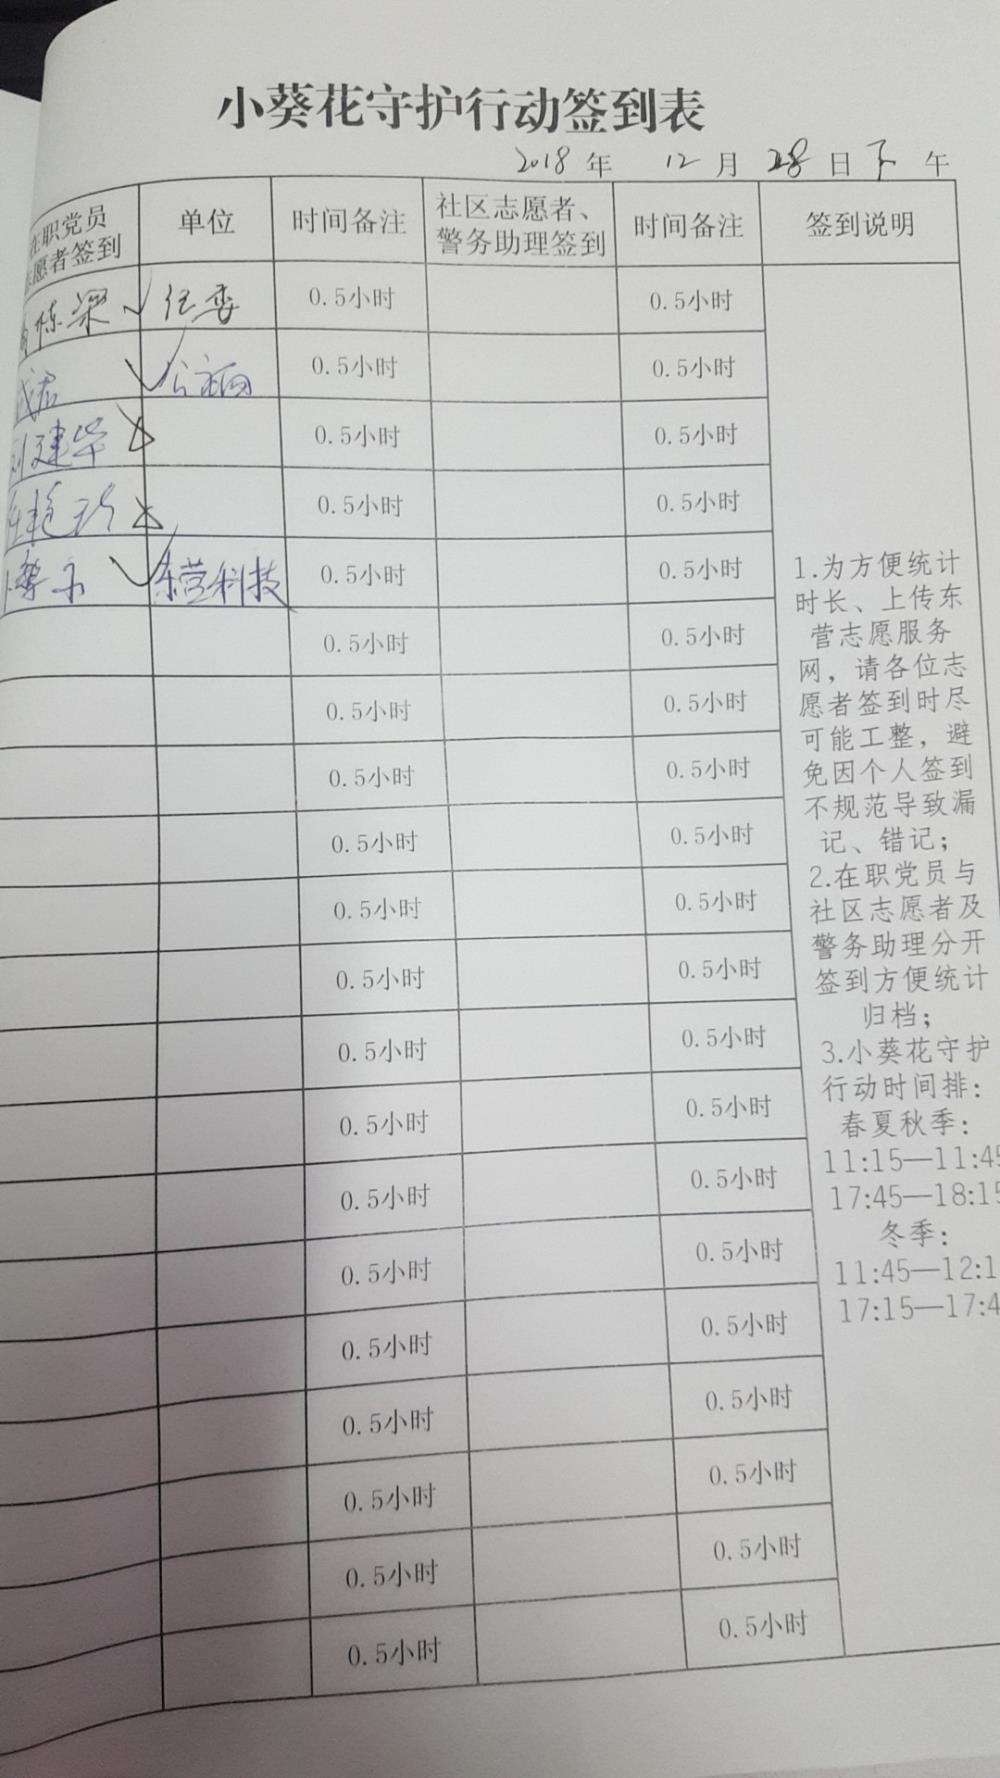 小葵花守护行动签到表
2018年 12月 28日下午
在职党员 单位 时间备注 社区志愿者、 时间备注 签到说明
志愿者签到 警务助理签到
栋梁 0.5小时 0.5小时
0.5小时 0.5小时
建华 0.5小时 0.5小时
0.5小时 0.5小时
东营科技 0.5小时 0.5小时
0.5小时 0.5小时
0.5小时 0.5小时
0.5小时 0.5小时
0.5小时 0.5小时
0.5小时 0.5小时
0.5小时 0.5小时
0.5小时 0.5小时
0.5小时 0.5小时
0.5小时 0.5小时
0.5小时 0.5小时
0.5小时 0.5小时
0.5小时 0.5小时
0.5小时 0.5小时
0.5小时 0.5小时
0.5小时 0.5小时
1.为方便统计
时长、上传东
营志愿服务
网，请各位志
愿者签到时尽
可能工整，避
免因个人签到
不规范导致漏
记、错记；
2.在职党员与
社区志愿者及
警务助理分开
签到方便统计
归档；
3.小葵花守护
行动时间排：
春夏秋季：
11:15—11:45
17:45—18:15
冬季：
11:45—12:1
17:15—17:4